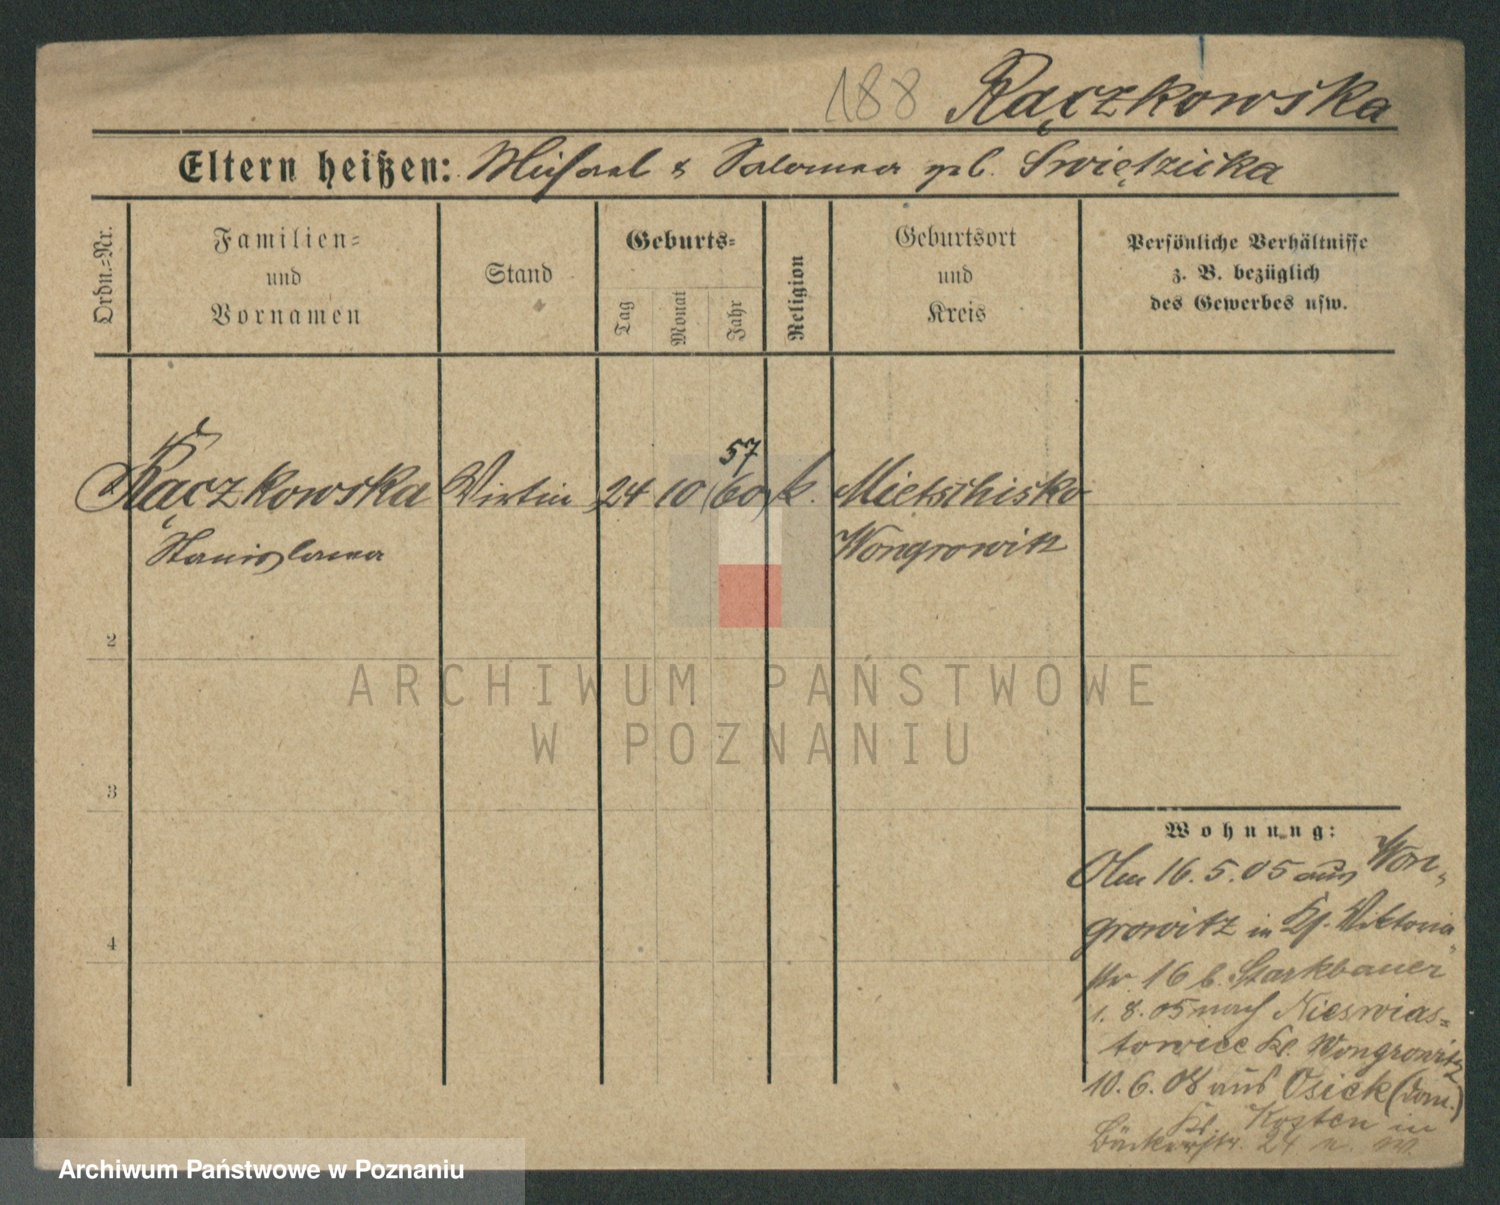 188 Rączkowska
Eltern heißen: Michael & Salomea gb.
Ordn.=Nr.
Familien=
und
Vornamen
Stand
Geburts=
Tag
Monat
Jahr
Religion
Geburtsort
und
Kreis
Persönliche Verhältnisse
z. B. bezüglich
des Gewerbes usw.
57
Rączkowska Wirtin 24 10 (60) k. Mietschisko
Stanislawa Wongrowitz
2
3
4
ARCHIWUM PAŃSTWOWE
W POZNANIU
Wohnung:
Am 16.5.05 aus Won-
growitz in Viktoria
str. 16 b. Starkbauer
1.8.05 nach Nieswias=
towice Kr. Wongrowitz
10.6.08 aus Osiek (Dom.)
Kr. Kosten in
Bäckerstr. 24
Archiwum Państwowe w Poznaniu